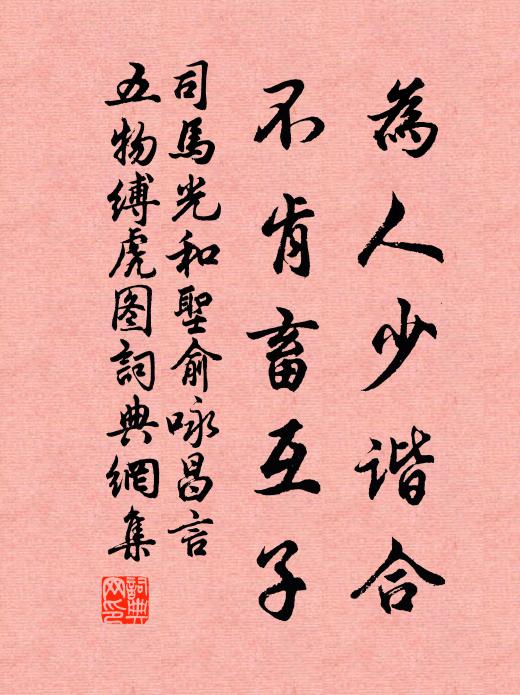 為人少谐合
不肯畜互子
司馬光和聖俞咏昌言
五物縛虎图詞典網集
詞典网印